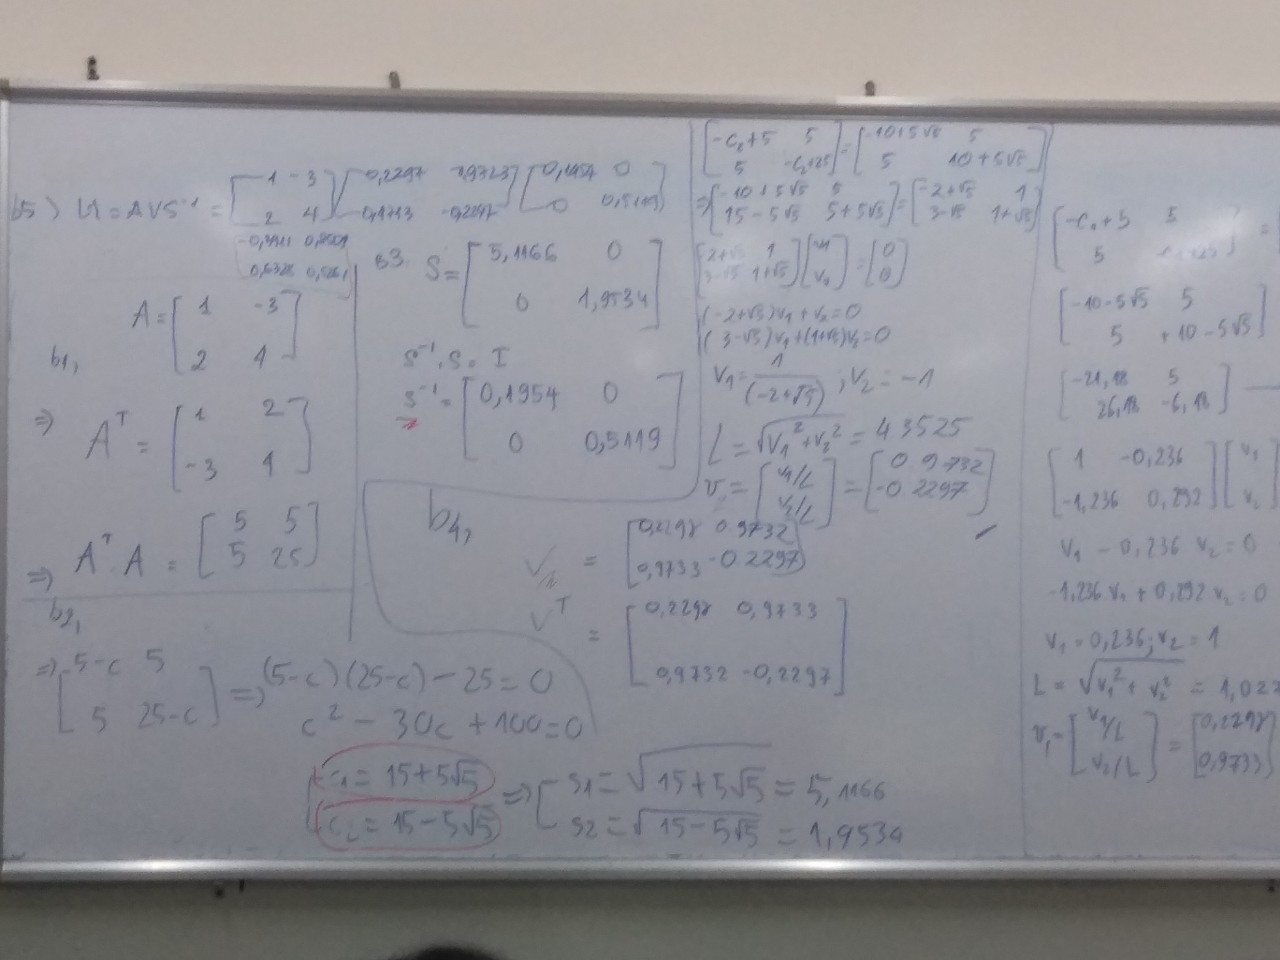 U = AVS⁻¹ = [1 -3
2 4] [0,2297
] [0,1954 0
0 0,5119]
b1,
A = [1 -3
2 4]
⇒ Aᵀ = [1 2
-3 4]
⇒ Aᵀ.A = [5 5
5 25]
b2,
⇒ [5-c 5
5 25-c] ⇒ (5-c)(25-c) - 25 = 0
c² - 30c + 100 = 0
c₁ = 15+5√5
c₂ = 15-5√5
⇒ [s1 = √15+5√5 = 5,1166
s2 = √15-5√5 = 1,9534
B3. S = [5,1166 0
0 1,9534]
S⁻¹.S = I
S⁻¹ = [0,1954 0
0 0,5119]
b4,
V = [0,2298 0 9732
0,9733 -0 2297]
Vᵀ = [0,2298 0,9733
0,9732 -0,2297]
[-c₂+5 5
5 -c₂+25] = [-10+5√5 5
5 10+5√5]
⇒ [-10+5√5 5
15-5√5 5+5√5] = [-2+√5 1
3-√5 1+√5]
[-2+√5 1
3-√5 1+√5] [v₁
v₂] = [0
0]
(-2+√5)v₁ + v₂ = 0
(3-√5)v₁ + (1+√5)v₂ = 0
V₁ = 1/(-2+√5) ; V₂ = -1
L = √V₁²+V₂² = 4 3525
v₂ = [v₁/L
v₂/L] = [0 9732
-0 2297]
[-c₁+5 5
5
[-10-5√5 5
5 +10-5√5]
[-21,18 5
26,18 -6,18]
[1 -0,236
-1,236 0,292] [v₁
v₂
v₁ - 0,236 v₂ = 0
-1,236 v₁ + 0,292 v₂ = 0
v₁ = 0,236; v₂ = 1
L = √v₁² + v₂² = 1,027
v₁ = [v₁/L
v₂/L] = [0,2298
0,9733